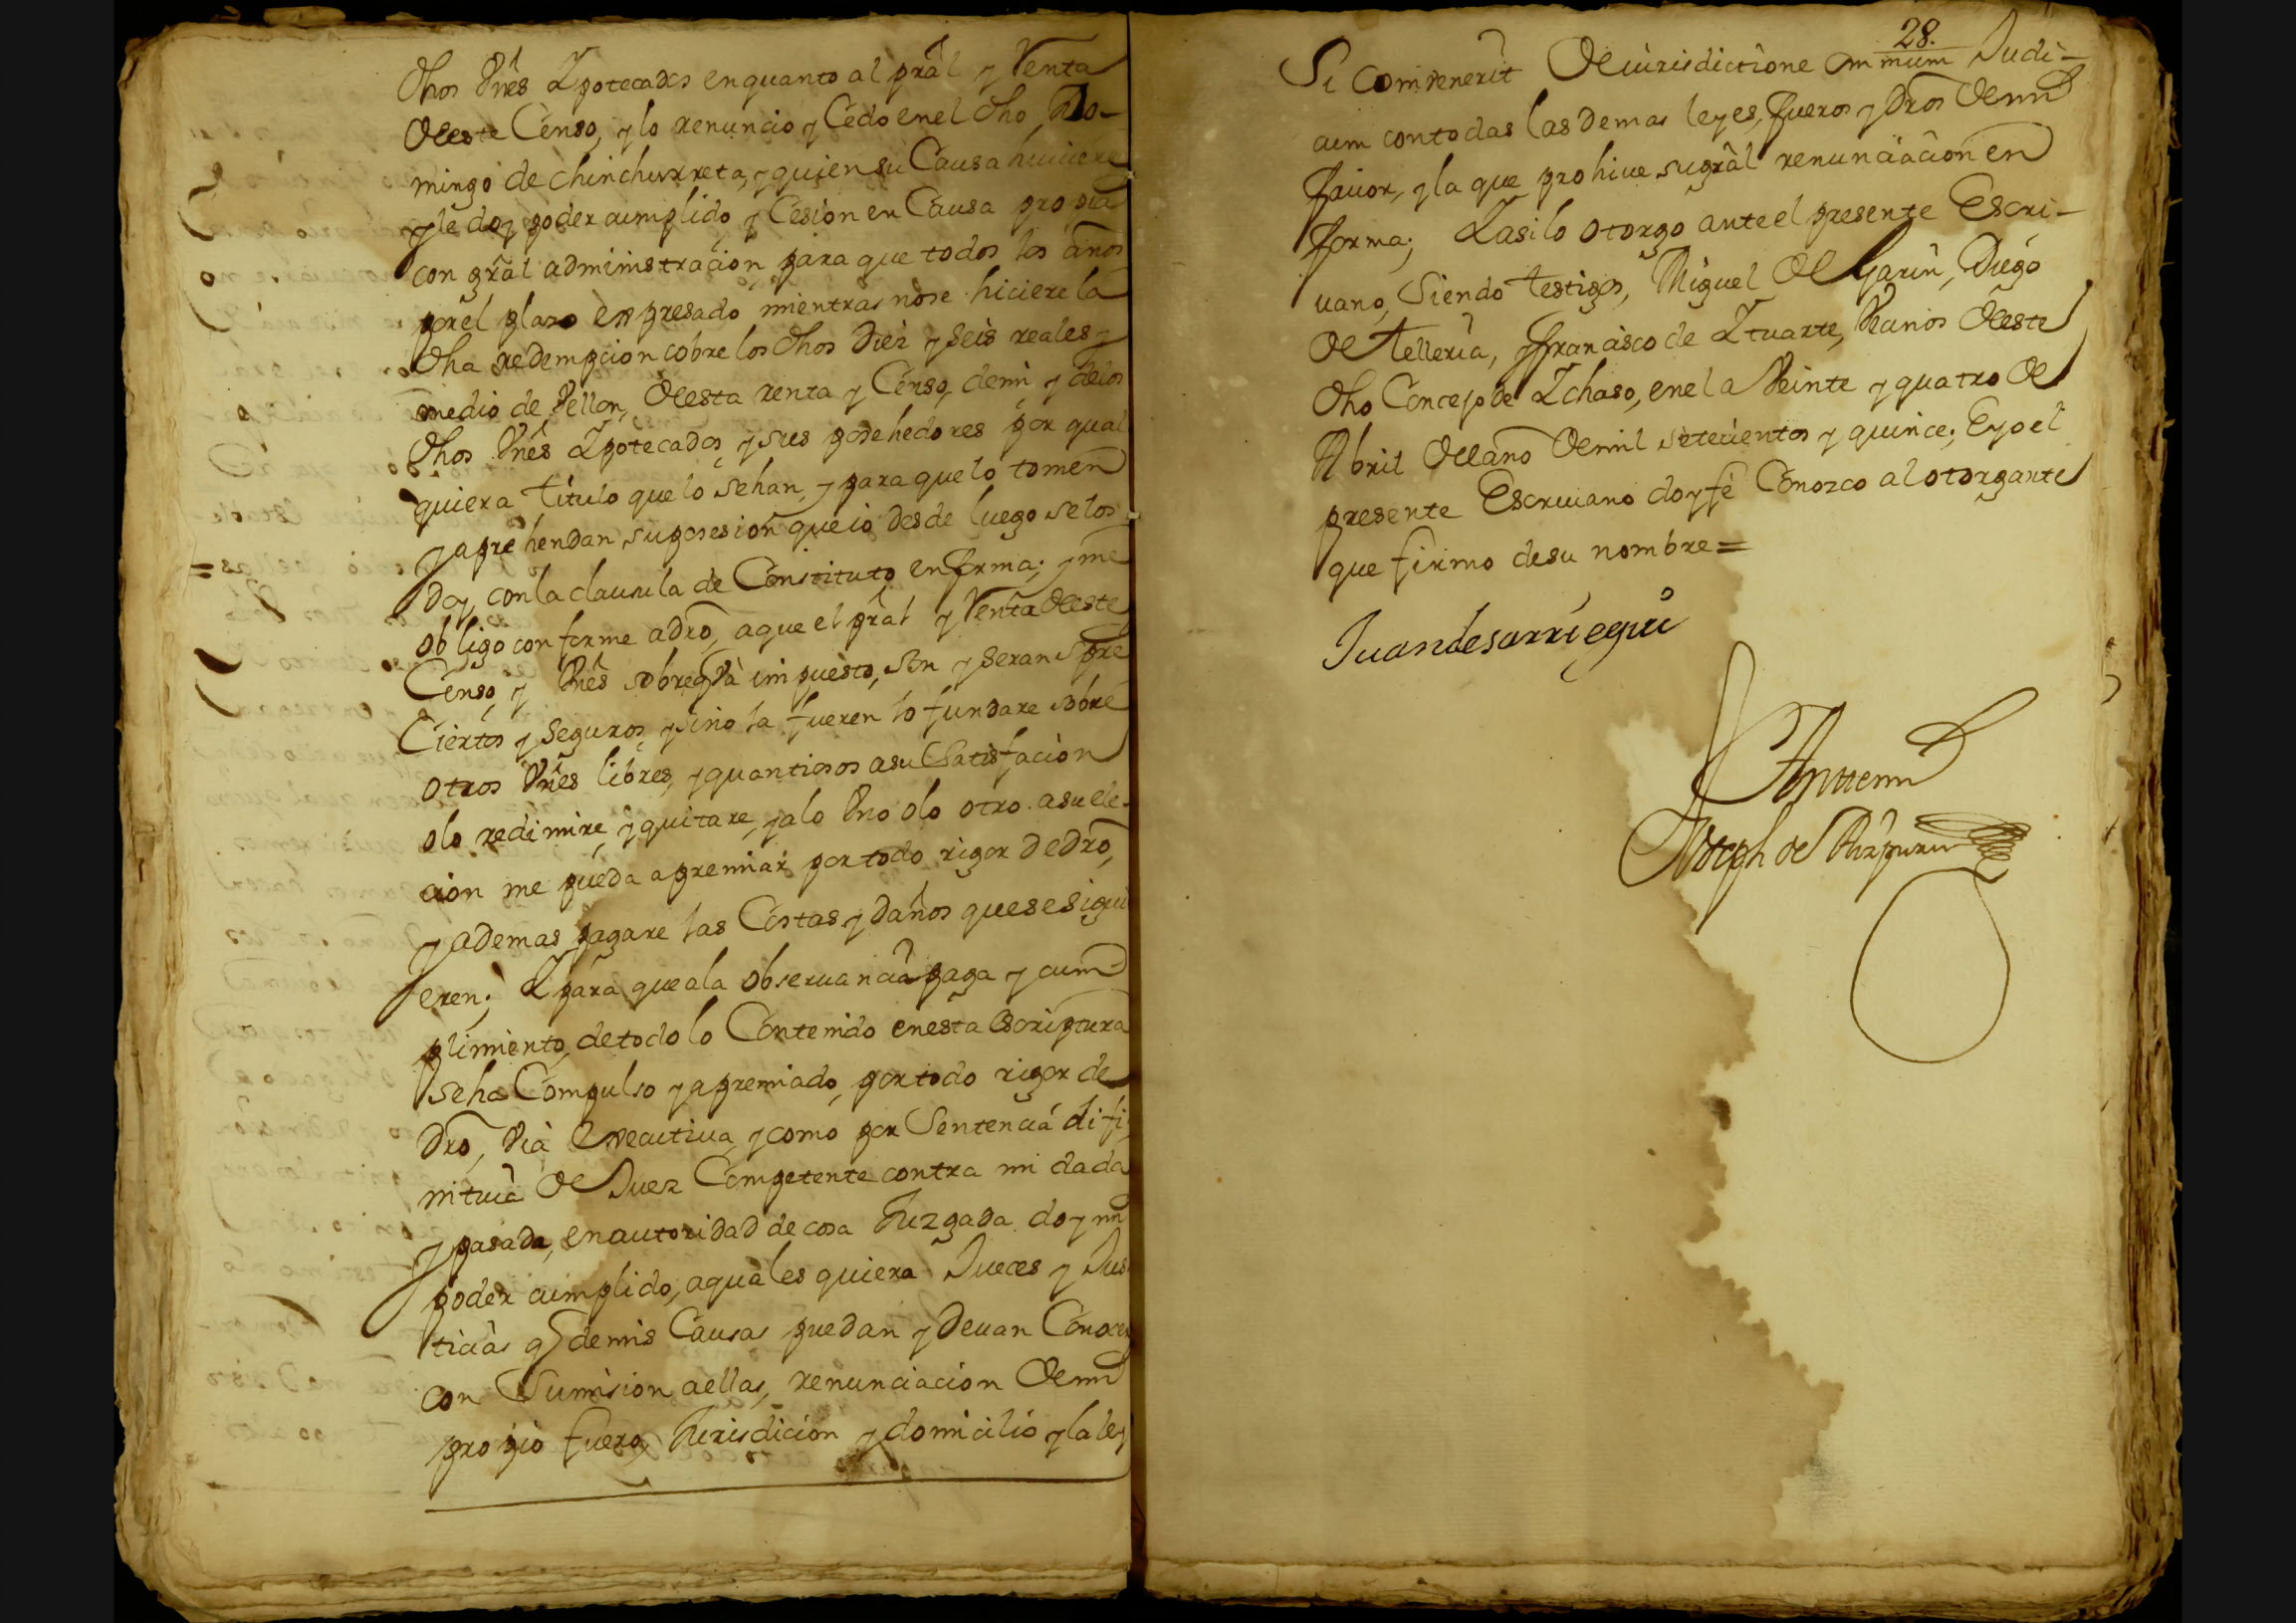 dhos Vnês Ypotecados enquanto al prâl y Renta
deeste Censo, y lo renuncio y Cedo enel dho Do-
mingo de chinchurreta, y quien su Causa huuiere
y le doy poder cumplido y Cesion en Causa propia
con grâl administracion, para que todos los años
porel plazo expresado mientras nose hiciere la
dha redempcion cobre los dhos Diez y seis reales y
medio de Vellon, deesta renta y Censo, demi, y delos
dhos Vnês Ypotecados, y sus posehedores por qual
quiera titulo que lo sehan, y para quelo tomen
y aprehendan suposesion queio desde luego selos
doy, conla clausula de Constituto enforma; y me
obligo conforme adro, aque el prâl y Renta deeste
Censo, y Vnês sobreq̃ va impuesto, son y seran spre
Ciertos y Seguros, ysino la fueren lo fundare sobre
otros Vnês libres, y quantiosos asu Satisfacion
olo redimire, y quitare, yalo Vno olo otro asuele-
cion me pueda apremiar portodo rigor dedro,
y ademas pagare las Costas y daños quesesigui
eren; Ypara queala obseruancia paga y cum-
plimiento, detodo lo Contenido enesta Escriptura
seha Compulso y apremiado, portodo rigor de
dro, Via executiua, y como por Sentencia difi
nitiua de Juez Competente contra mi dada
y pasada, enautoridad de cosa Juzgada doy mi
poder cumplido, aquales quiera Jueces y Jus
ticias q̃ demis Causas puedan y Deuan Conocer
con Sumision aellas, renunciacion demi
propio fuero, Jurisdicion y domicilio y la ley
28.
Si Comvenerit de iurisdictione omnium Judi-
cum contodas lasdemas leyes, fueros y dros demi
fauor, y la que prohiue sugrâl renunciacion en
forma; Yasilo otorgo anteel presente Escri-
uano, Siendo testigos, Miguel de Garin, Diego
de telleria, y francisco de Ytuarte, Vecinos deeste
dho Concejo de Ychaso, enel a Veinte y quatro de
Abril delaño demil setecientos y quince; Eyoel
presente Escriuano doyfe Conozco al otorgante
que firmo desu nombre=
Juandesarriegui
Antemi
Joseph de Aizpuru